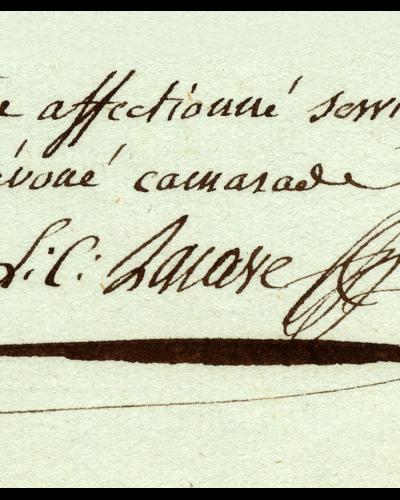 e affectionné servi
évoué camarade
L: C: Lacave